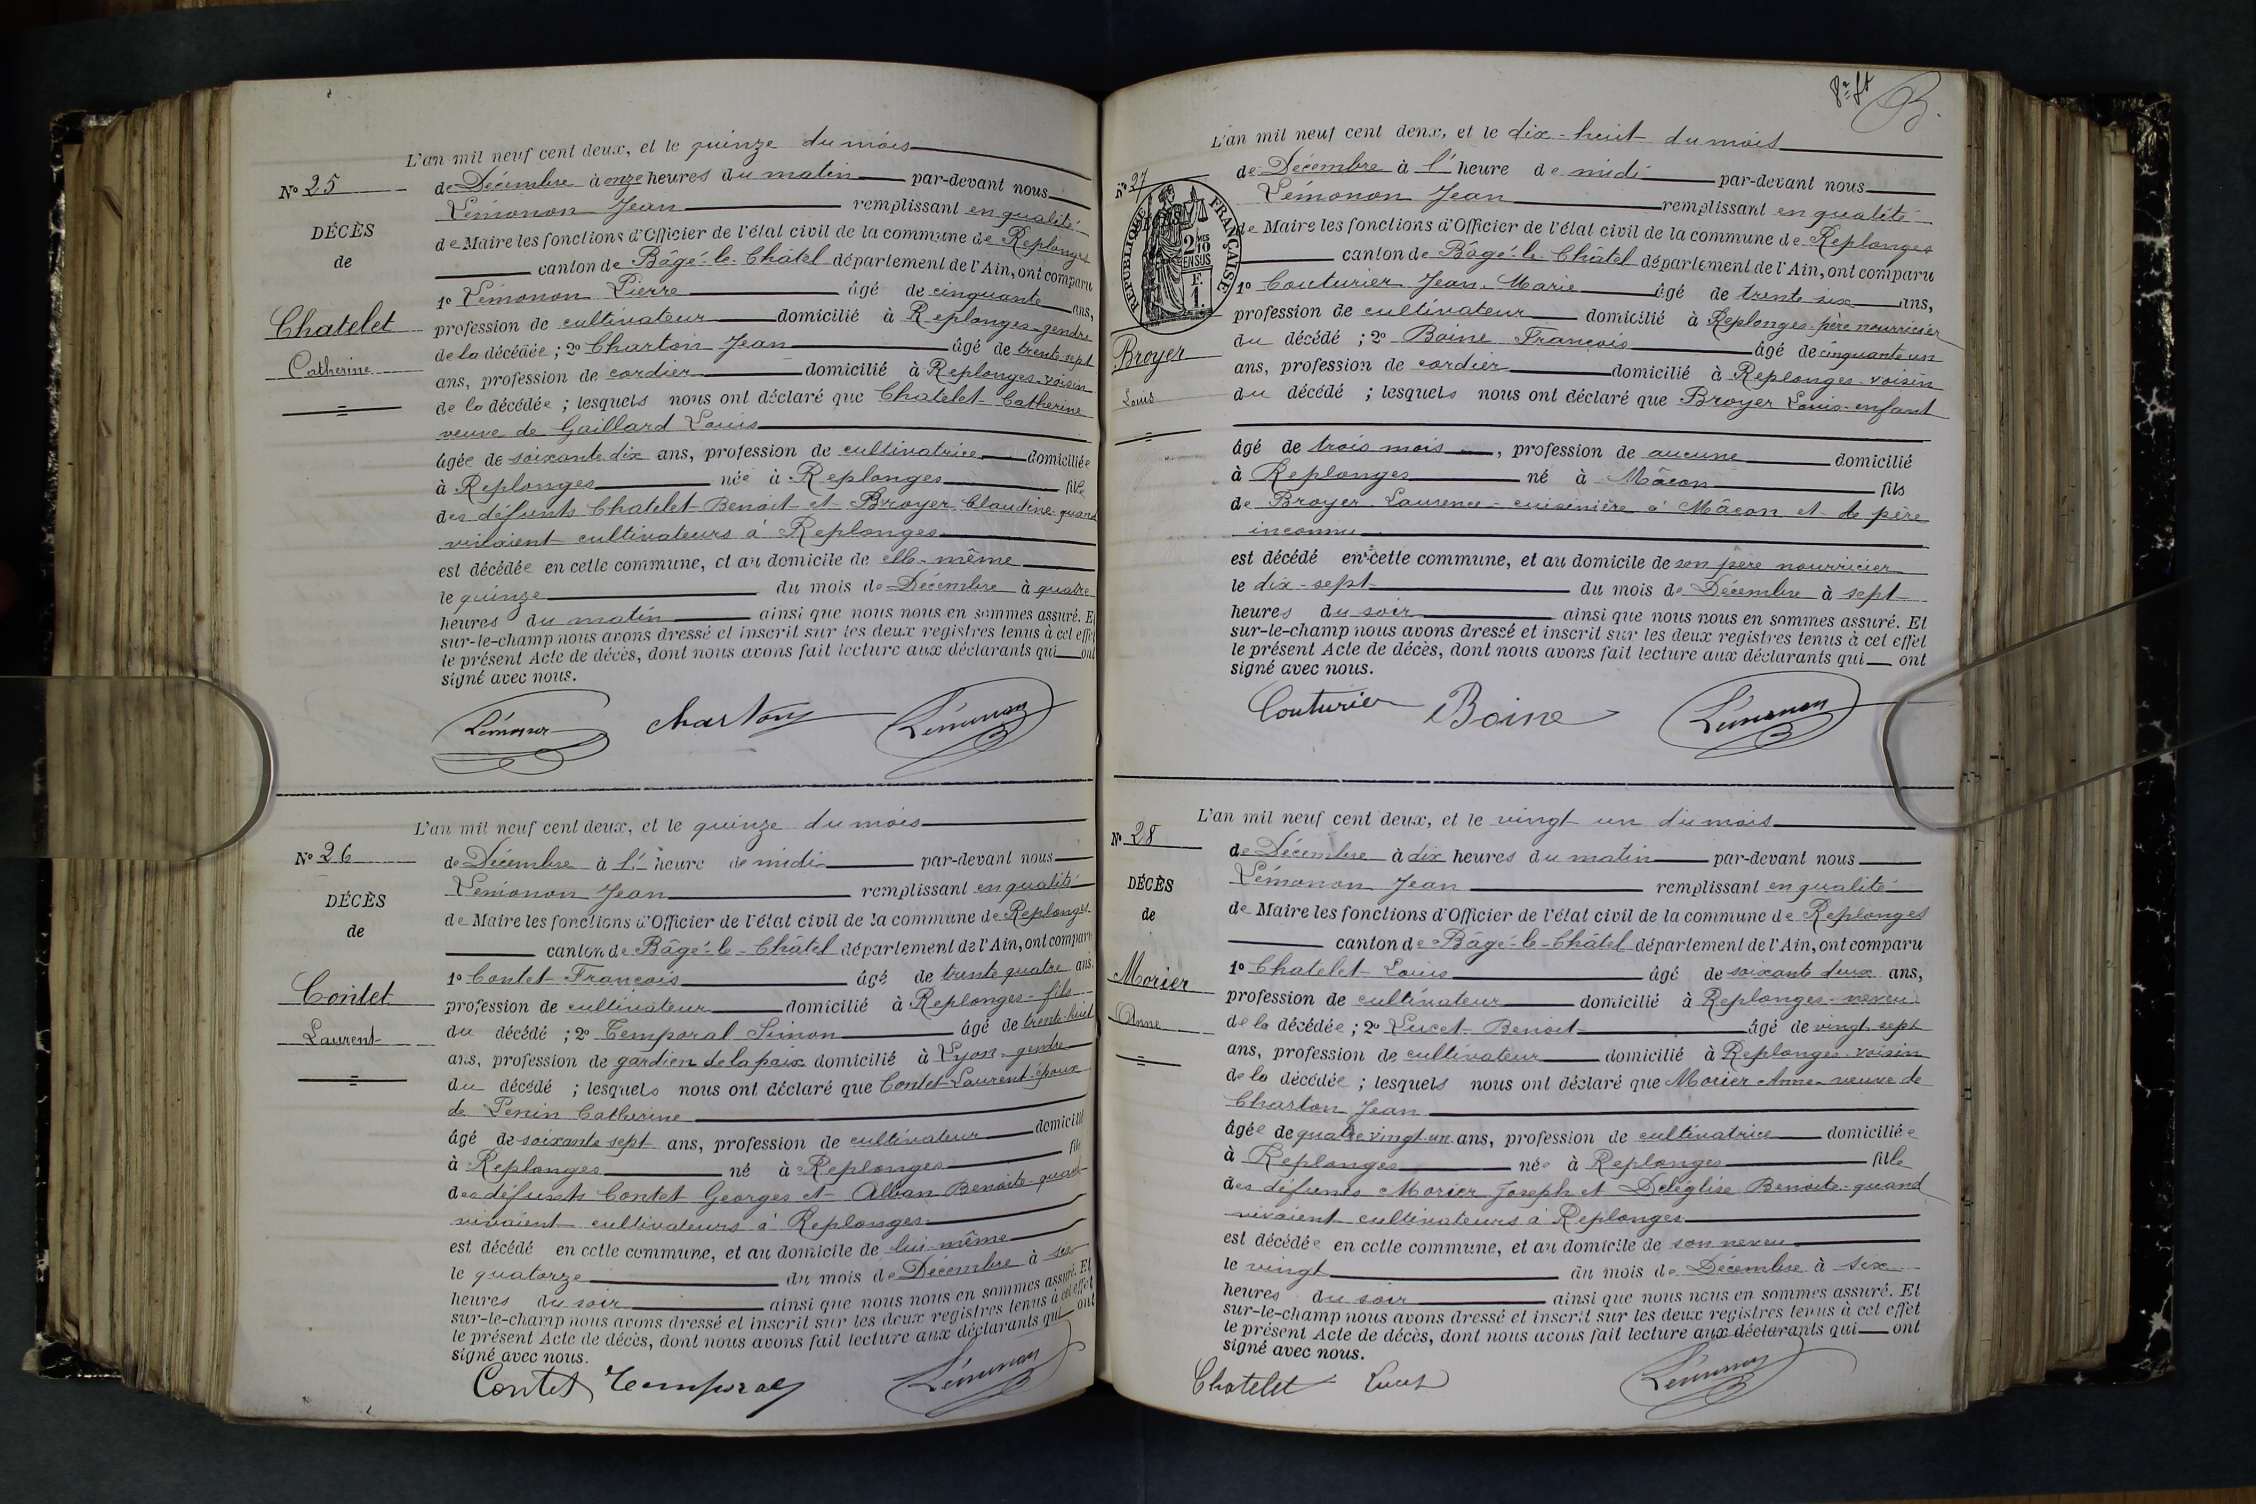 L'an mil neuf cent deux, et le quinze du mois
N° 25
de Décembre à onze heures du matin par-devant nous
Lémonon Jean remplissant en qualité
DÉCÈS
de
de Maire les fonctions d'Officier de l'état civil de la commune de Replonges
canton de Bâgé-le-Châtel département de l'Ain, ont comparu
1° Lémonon Pierre âgé de cinquante ans,
Chatelet
Catherine
profession de cultivateur domicilié à Replonges gendre
de la décédée ; 2° Charton Jean âgé de trente sept
ans, profession de cordier domicilié à Replonges-voisin
de la décédée ; lesquels nous ont déclaré que Chatelet Catherine
veuve de Gaillard Louis
âgée de soixante dix ans, profession de cultivatrice domiciliée
à Replonges née à Replonges fille
des défunts Chatelet Benoit et Broyer Claudine quand
vivaient cultivateurs à Replonges
est décédée en cette commune, et au domicile de elle-même
le quinze du mois de Décembre à quatre
heures du matin ainsi que nous nous en sommes assuré. Et
sur-le-champ nous avons dressé et inscrit sur les deux registres tenus à cet effet
le présent Acte de décès, dont nous avons fait lecture aux déclarants qui ont
signé avec nous.
Lémonon Charton Lémonon
L'an mil neuf cent deux, et le quinze du mois
N° 26
de Décembre à l' heure de midi par-devant nous
Lémonon Jean remplissant en qualité
DÉCÈS
de
de Maire les fonctions d'Officier de l'état civil de la commune de Replonges
canton de Bâgé-le-Châtel département de l'Ain, ont comparu
1° Contet François âgé de trente quatre ans
Contet
Laurent
profession de cultivateur domicilié à Replonges-fils
du décédé ; 2° Temporal Simon âgé de trente-huit
ans, profession de gardien de la paix domicilié à Lyon-gendre
du décédé ; lesquels nous ont déclaré que Contet Laurent époux
de Penin Catherine
âgé de soixante sept ans, profession de cultivateur domicilié
à Replonges né à Replonges fils
des défunts Contet Georges et Alban Benoite quand
vivaient cultivateurs à Replonges
est décédé en cette commune, et au domicile de lui-même
le quatorze du mois de Décembre à six
heures du soir ainsi que nous nous en sommes assuré. Et
sur-le-champ nous avons dressé et inscrit sur les deux registres tenus à cet effet
le présent Acte de décès, dont nous avons fait lecture aux déclarants qui ont
signé avec nous.
Contet Temporal Lémonon
L'an mil neuf cent deux, et le dix-huit du mois
N° 27
de Décembre à l' heure de midi par-devant nous
Lémonon Jean remplissant en qualité
RÉPUBLIQUE FRANÇAISE
2 MES
10
EN SUS
F.
1.
de Maire les fonctions d'Officier de l'état civil de la commune de Replonges
canton de Bâgé-le-Châtel département de l'Ain, ont comparu
1° Couturier Jean-Marie âgé de trente six ans,
profession de cultivateur domicilié à Replonges-père nourricier
Broyer
Louis
du décédé ; 2° Boine François âgé de cinquante un
ans, profession de cordier domicilié à Replonges-voisin
du décédé ; lesquels nous ont déclaré que Broyer Louis-enfant
âgé de trois mois , profession de aucune domicilié
à Replonges né à Mâcon fils
de Broyer Laurence-cuisinière à Mâcon et de père
inconnu
est décédé en cette commune, et au domicile de son père nourricier
le dix-sept du mois de Décembre à sept
heures du soir ainsi que nous nous en sommes assuré. Et
sur-le-champ nous avons dressé et inscrit sur les deux registres tenus à cet effet
le présent Acte de décès, dont nous avons fait lecture aux déclarants qui ont
signé avec nous.
Couturier Boine Lémonon
L'an mil neuf cent deux, et le vingt un du mois
N° 28
de Décembre à dix heures du matin par-devant nous
Lémonon Jean remplissant en qualité
DÉCÈS
de
de Maire les fonctions d'Officier de l'état civil de la commune de Replonges
canton de Bâgé-le-Châtel département de l'Ain, ont comparu
1° Chatelet Louis âgé de soixante deux ans,
Morier
Anne
profession de cultivateur domicilié à Replonges-neveu
de la décédée ; 2° Lucet Benoit âgé de vingt sept
ans, profession de cultivateur domicilié à Replonges-voisin
de la décédée ; lesquels nous ont déclaré que Morier Anne veuve de
Charton Jean
âgée de quatre vingt un ans, profession de cultivatrice domiciliée
à Replonges née à Replonges fille
des défunts Morier Joseph et Deléglise Benoite-quand
vivaient cultivateurs à Replonges
est décédée en cette commune, et au domicile de son neveu
le vingt du mois de Décembre à six
heures du soir ainsi que nous nous en sommes assuré. Et
sur-le-champ nous avons dressé et inscrit sur les deux registres tenus à cet effet
le présent Acte de décès, dont nous avons fait lecture aux déclarants qui ont
signé avec nous.
Chatelet Lucet Lémonon